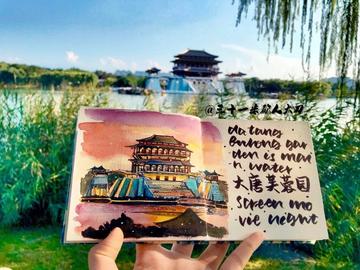 @三十一崔航人大刀
da tang
furong gar
den is mai
n water
大唐芙蓉园
screen mo
vie night